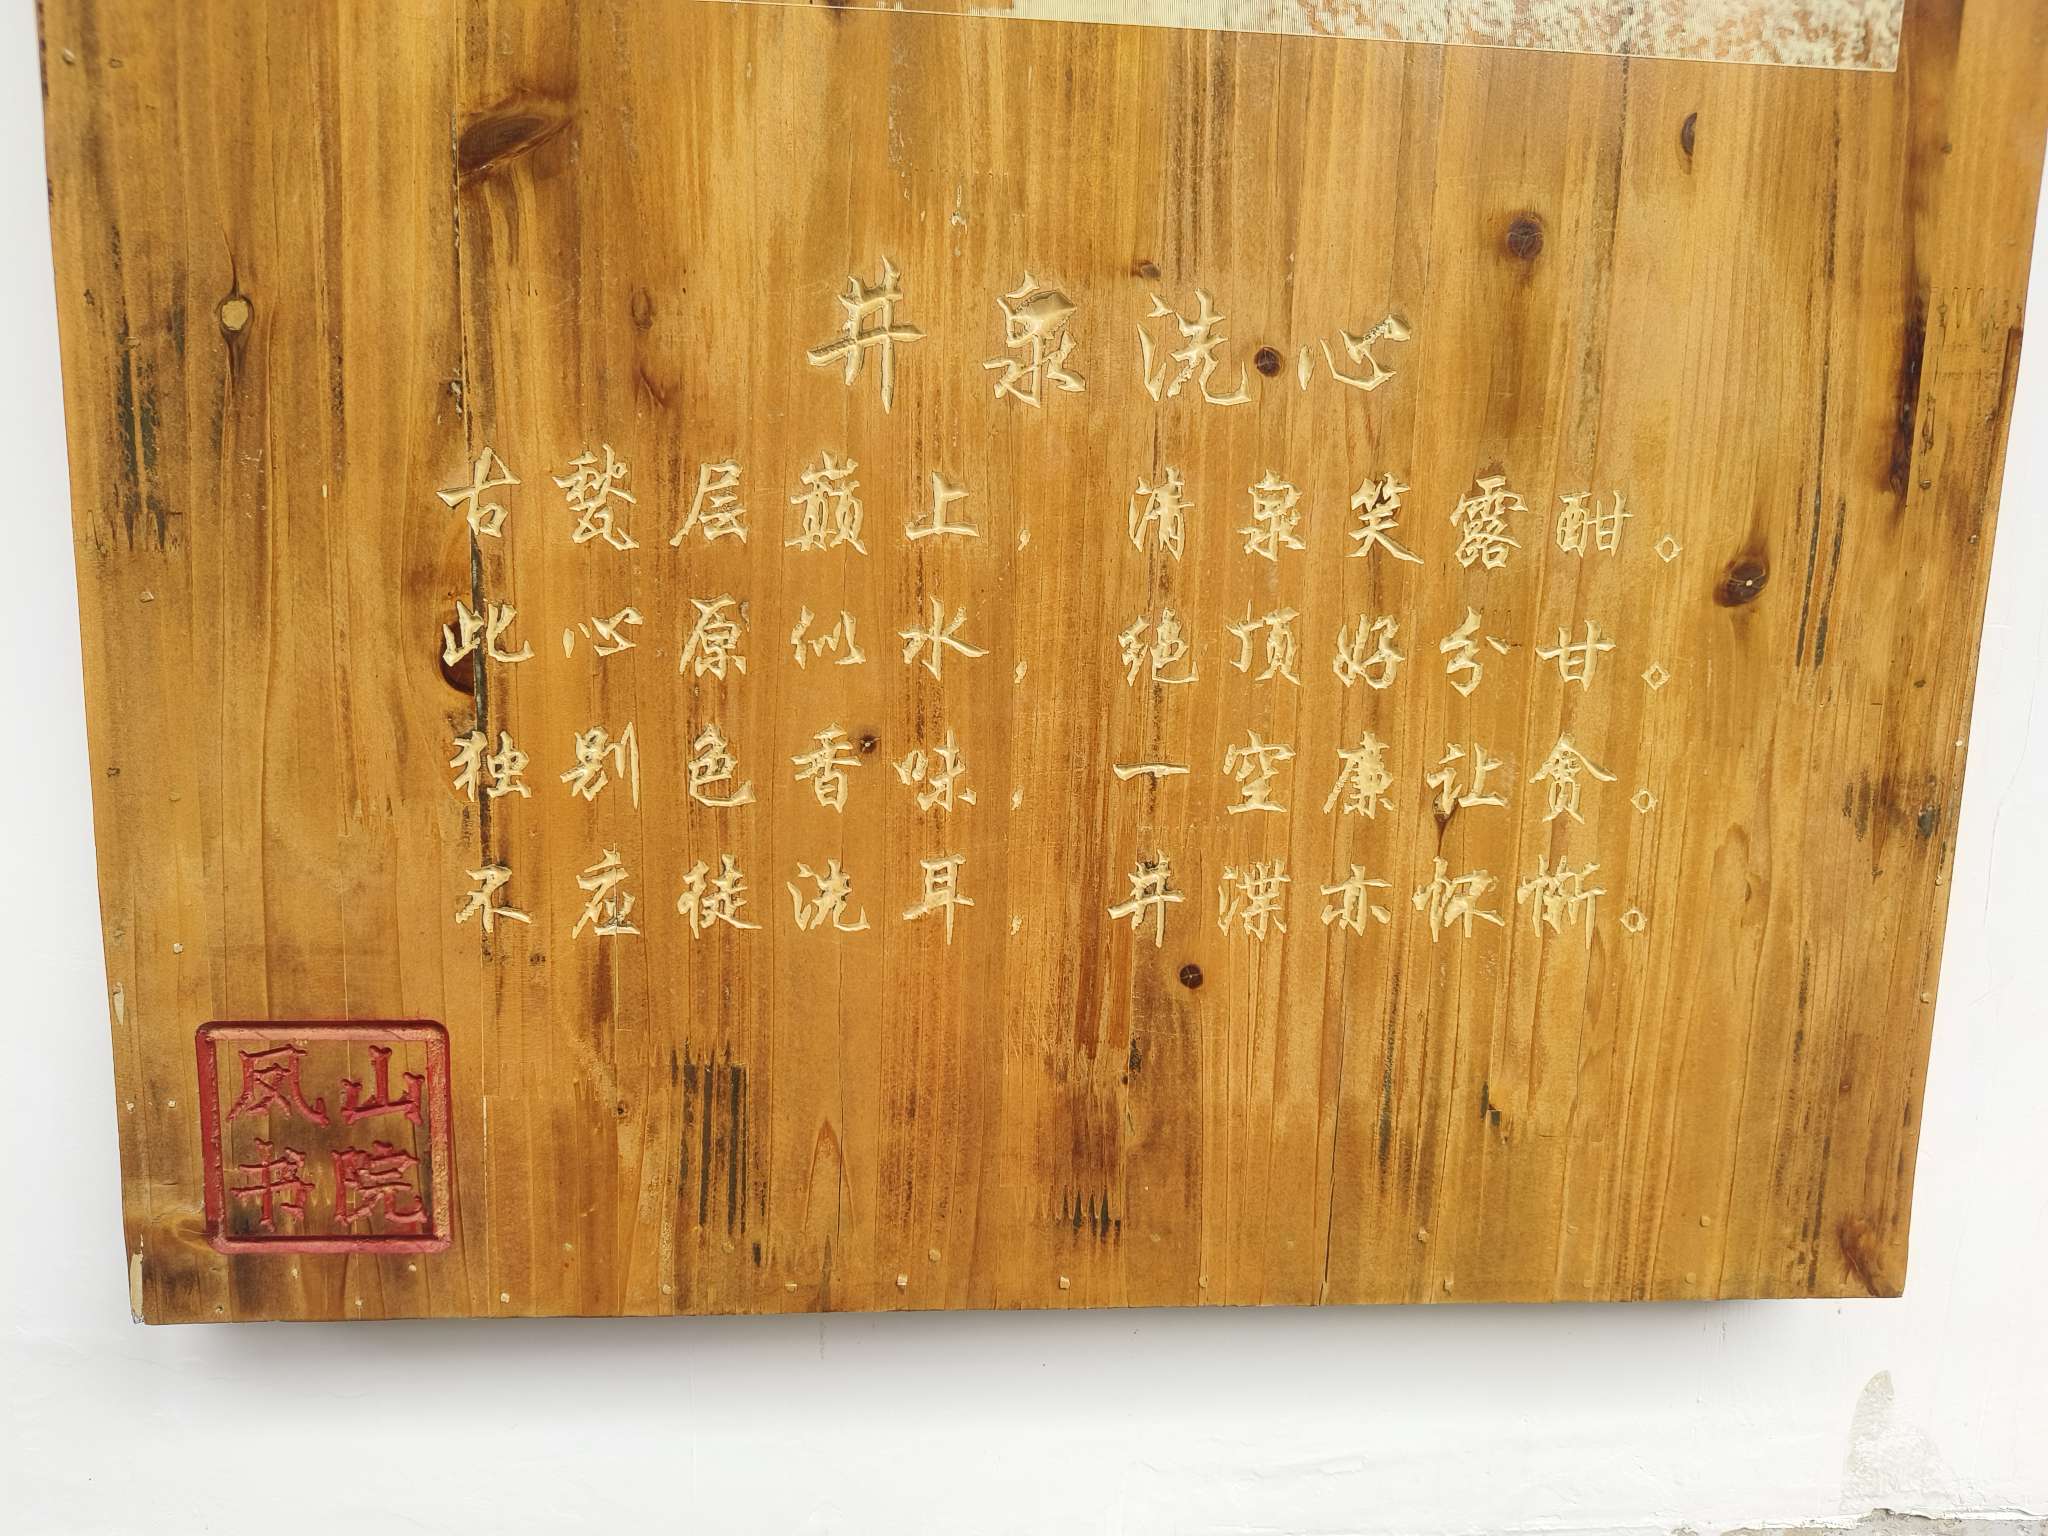 井泉洗心
古甃层巅上，清泉笑露酣。
此心原似水，绝顶好分甘。
独别色香味，一空廉让贪。
不应徒洗耳，井渫亦怀惭。
凤山
书院